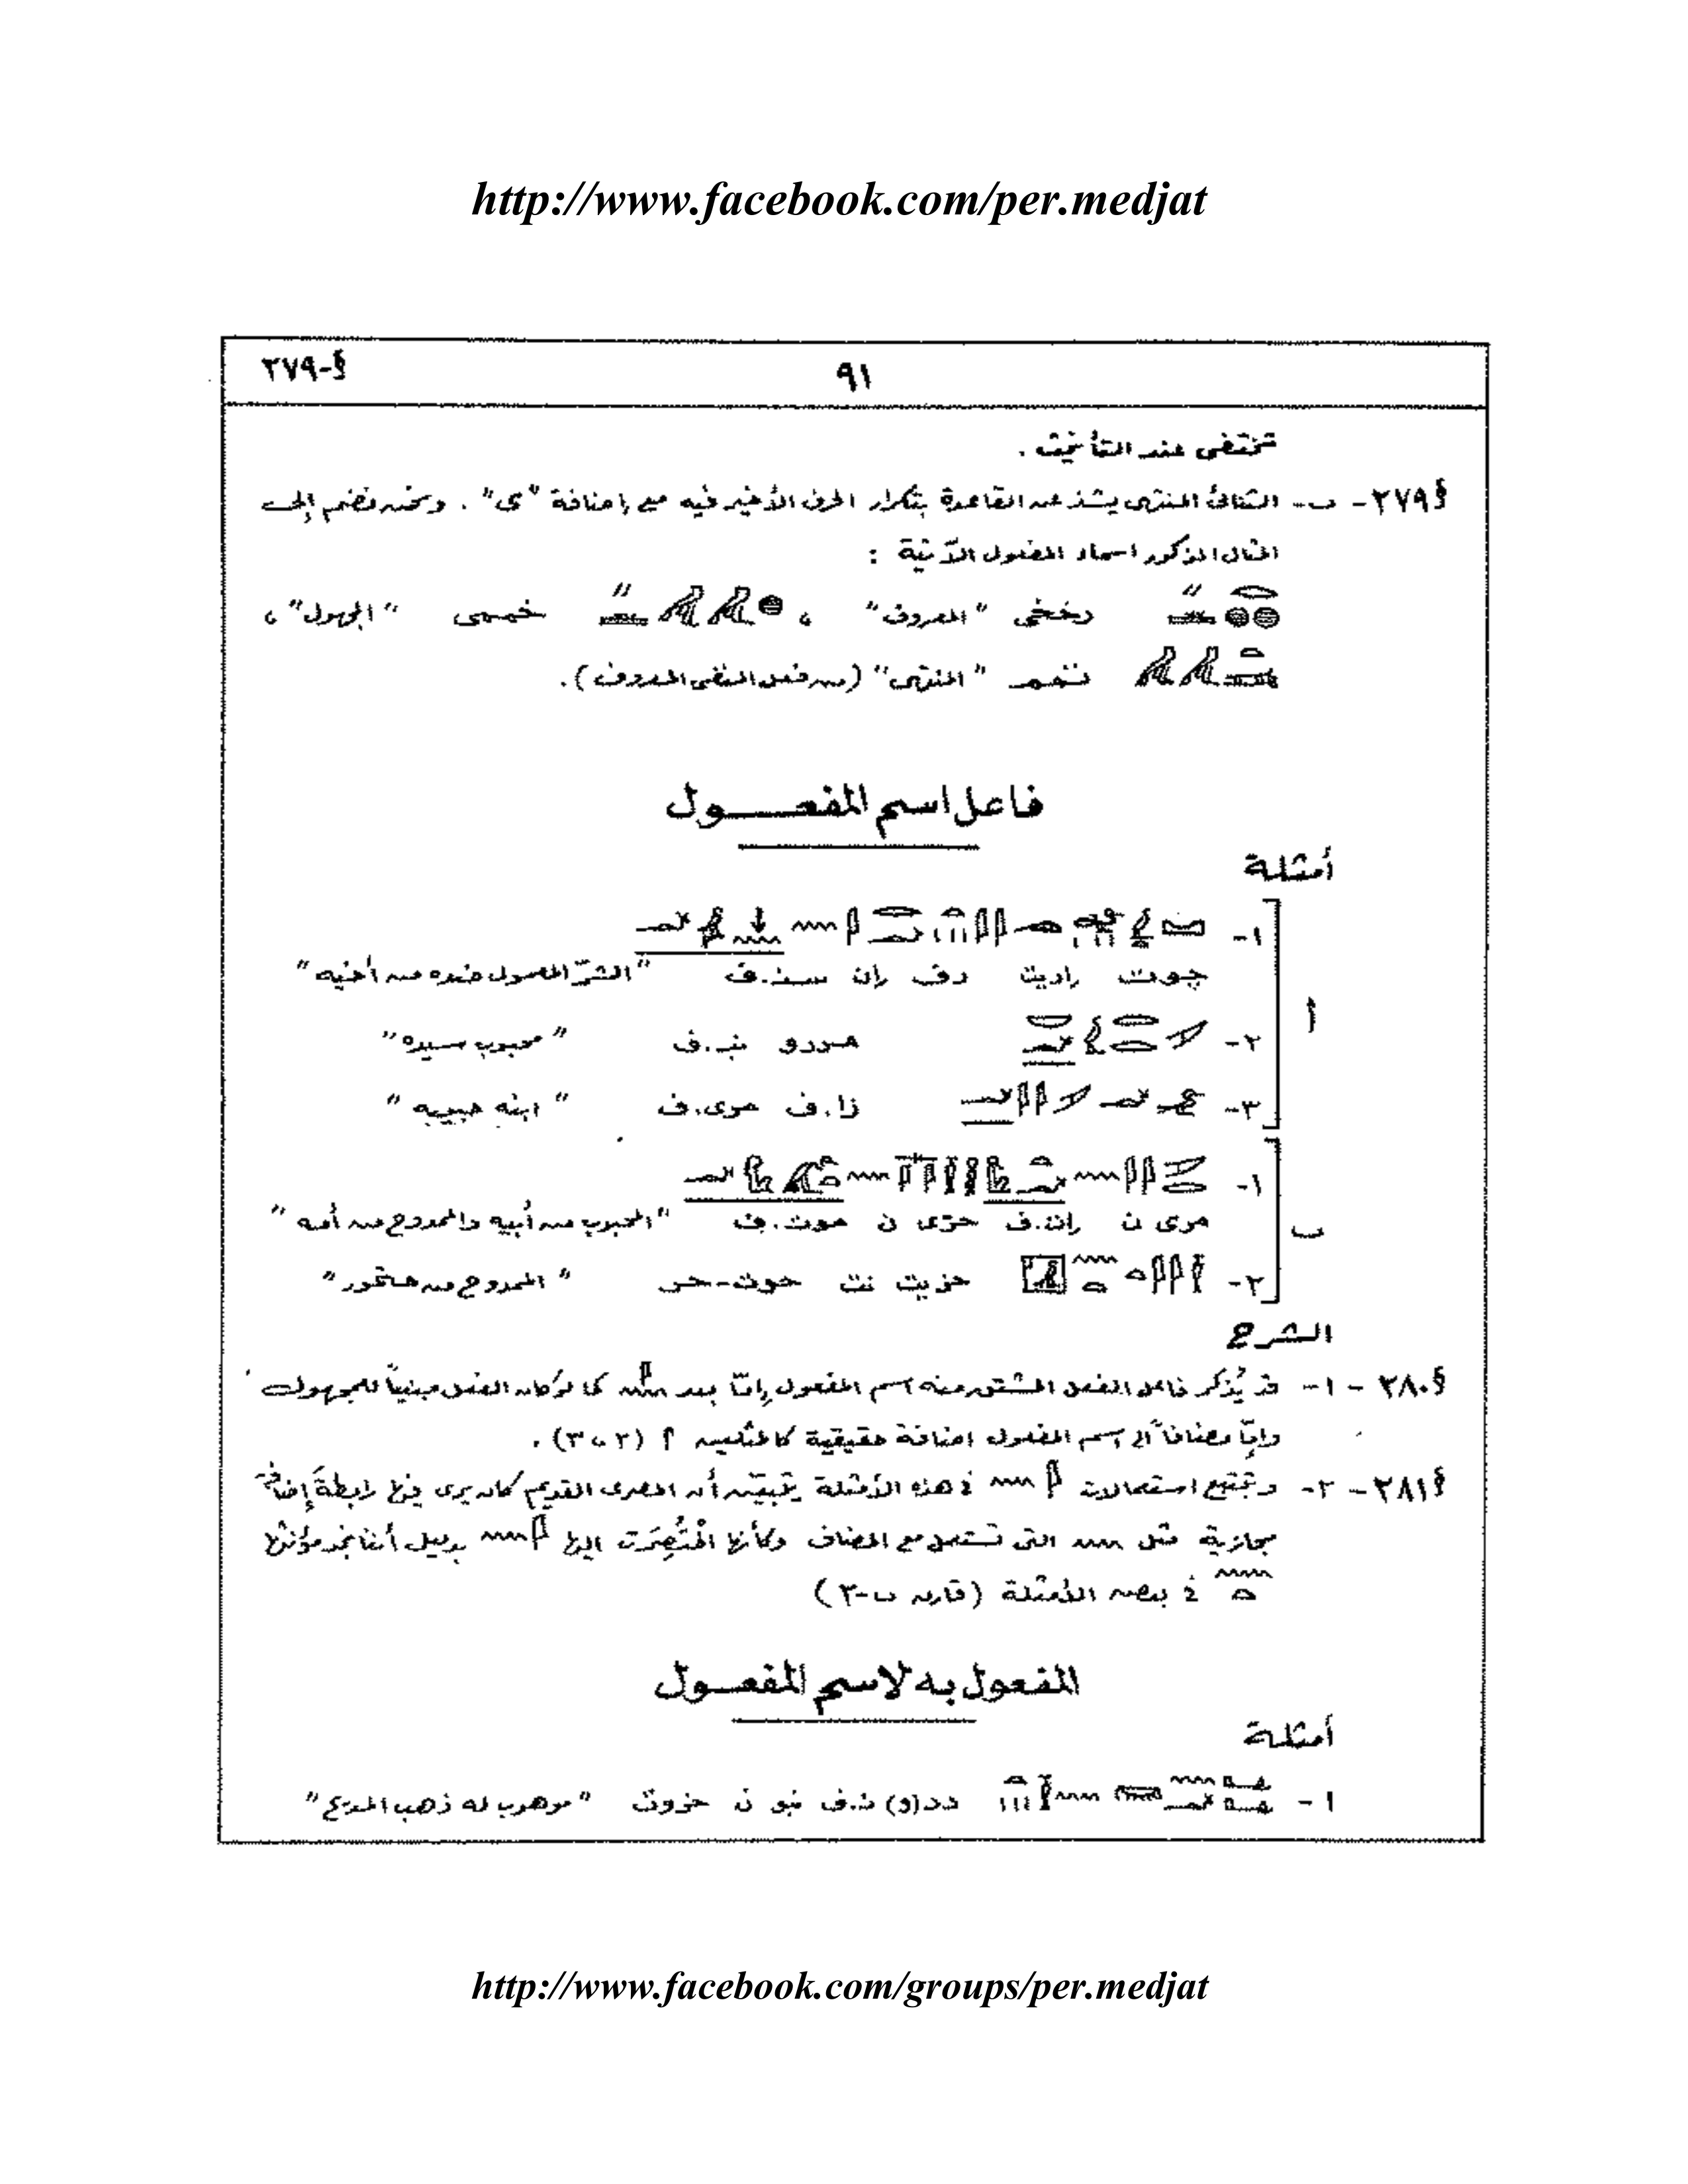 http://www.facebook.com/per.medjat
§-٢٧٩
٩١
تختفى عند التأنيث .
§٢٧٩ - ب- الثنائى المنتهى يشذ عن القاعدة بتكرار الحرف الأخير فيه مع إضافة "ى" . ونحن نضم إلى
المثال المذكور اسماء المفعول الآتية :
رخخى "المعروف" ، خممى "المجهول" ،
تمم "المنتهى" (من فعل النفى المعروف) .
فاعل اسم المفعـــول
أمثلة
أ
١-
جوت راديت رف إن سن.ف "الشرّ المعمول ضده من أخيه"
٢- مررو نب.ف "محبوب سيده"
٣- زا.ف مرى.ف "ابنه حبيبه"
ب
١-
مرى ن إت.ف حزى ن موت.ف "المحبوب من أبيه والممدوح من أمه"
٢- حزيت نت حوت-حر "الممدوح من حتحور"
الشرح
§٢٨٠ - ١- قد يُذكر فاعل الفعل المشتق منه اسم المفعول إمّا بعد كما لو كان الفعل مبنياً للمجهول
وإمّا مضافاً إلى اسم المفعول اضافة حقيقية كالمثلين أ (٢ ، ٣) .
§٢٨١ - ٢- وبتتبع استعمالات فى هذه الأمثلة يتبين أن المصرى القديم كان يرى فيها رابطة إضافة
مجازية مثل التى تستعمل مع المضاف وكأنها اختُصِرَت اليها بدليل أننا نجد مؤنثها
فى بعض الأمثلة (قارن ب-٢)
المفعول به لاسم المفعــول
أمثلة
١- دد(و) ن.ف نبو ن حزوت "موهوب له ذهب المديح"
http://www.facebook.com/groups/per.medjat